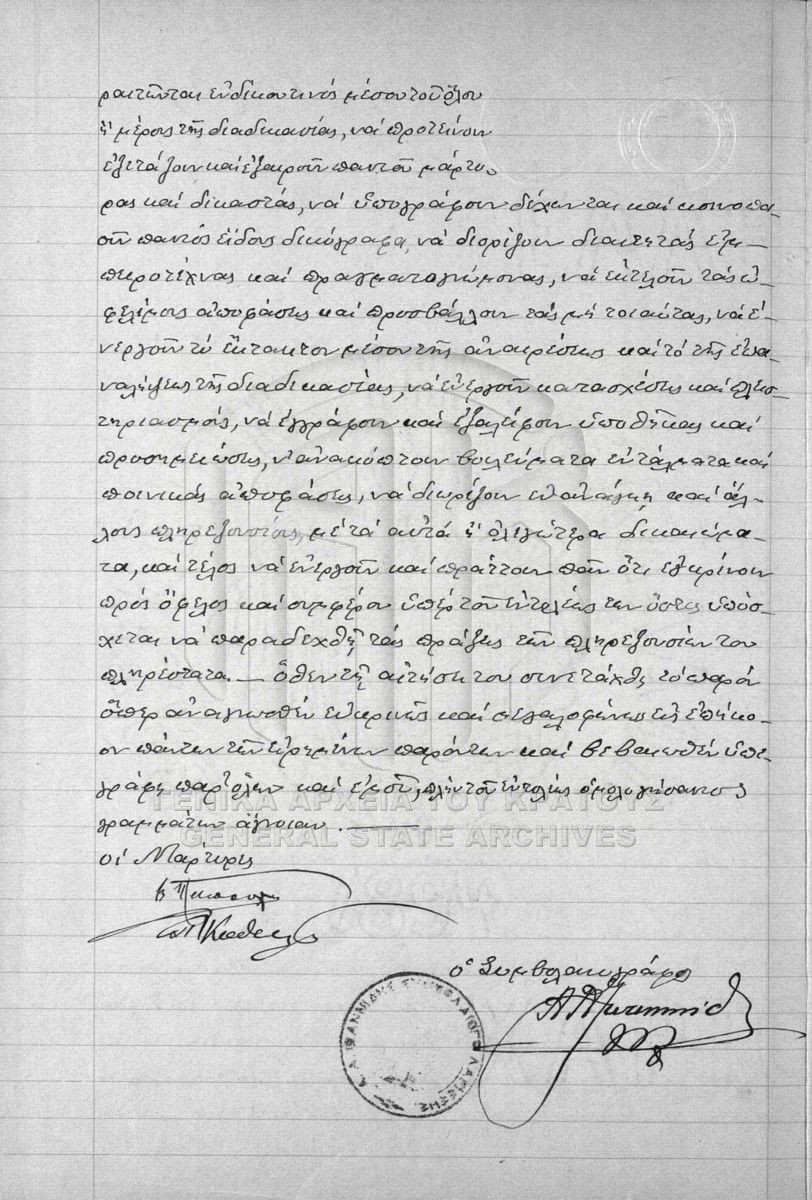 ραιτῶνται ἐνδίκου τινός μέσου τοῦ ὅλου
ἤ μέρους τῆς διαδικασίας, νά προτείνουν
ἐξετάζουν καί ἐξαιροῦν παντοῦ μάρτυ-
ρας καί δικαστάς, νά ὑπογράφουν δέχωνται καί κοινοποι-
οῦν παντός εἴδους δικόγραφα, νά διορίζουν διαιτητάς ἐμ-
πειροτέχνας καί πραγματογνώμονας, νά ἐκτελοῦν τάς ὠ-
φελίμους ἀποφάσεις καί προσβάλλουν τάς μή τοιαύτας, νά ἐ-
νεργοῦν τό ἔκτακτον μέσον τῆς ἀναιρέσεως καί τό τῆς ἐπα-
ναλήψεως τῆς διαδικασίας, νά ἐνεργοῦν κατασχέσεις καί πλεισ-
τηριασμούς, νά ἐγγράφουν καί ἐξαλείφουν ὑποθήκας καί
προσημειώσεις, ν' ἀνακόπτουν βουλεύματα ἐντάλματα καί
ποινικάς ἀποφάσεις, νά διωρίζουν ἐν ἀνάγκῃ καί ἄλ-
λους πληρεξουσίους, μέ τά αὐτά ἤ ὀλιγώτερα δικαιώμα-
τα, καί τέλος νά ἐνεργοῦν καί πράττουν πᾶν ὅτι ἐγκρίνουν
πρός ὄφελος καί συμφέρον ὑπέρ τοῦ ἐντολέως των ὅστις ὑπόσ-
χεται νά παραδεχθῇ τάς πράξεις τῶν πληρεξουσίων του
πληρέστατα. — Ὅθεν τῇ αἰτήσει του συνετάχθη τό παρόν
ὅπερ ἀναγνωσθέν εὐκρινῶς καί μεγαλοφώνως εἰς ἐπήκο-
ον πάντων τῶν εἰρημένων παρόντων καί βεβαιωθέν ὑπε-
γράφη παρ' ὅλων καί ἐμοῦ, πλήν τοῦ ἐντολέως ὁμολογήσαντος
γραμμάτων ἄγνοιαν. —
οἱ Μάρτυρες
ὁ Συμβολαιογράφος
ΣΥΜΒΟΛΑΙΟΓΡ
ΛΑΡΙΣΣΗΣ
ΓΕΝΙΚΑ ΑΡΧΕΙΑ ΤΟΥ ΚΡΑΤΟΥΣ
GENERAL STATE ARCHIVES